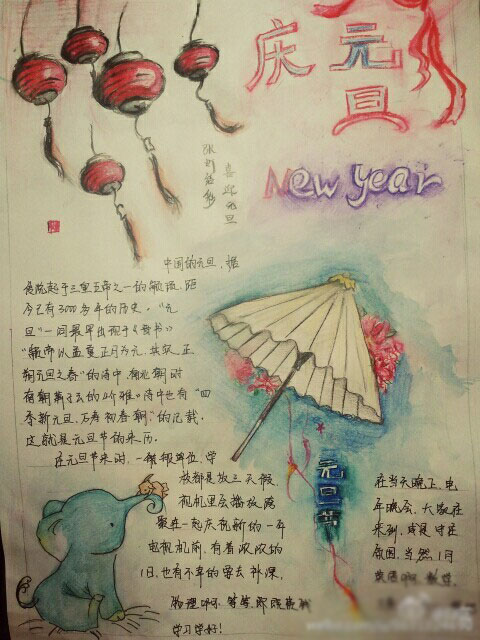 庆元旦
New year
喜迎元旦
中国的元旦，据
传说起于三皇五帝之一的颛顼，距
今已有3000多年的历史。“元
旦”一词最早出现于《晋书》
“颛帝以孟夏正月为元，其实正
朔元旦之春”的诗中。南北朝时
南朝萧子云的《介雅》诗中也有“四
季新元旦，万寿初春朝”的记载。
这就是元旦节的来历。
在元旦节来时，一般报单位，学
校都是放三天假
视机里会播放跨
聚在一起庆祝新的一年
电视机前，有着浓浓的
1日，也有不幸的要去补课，
物理啊 等等，那既来
学习学好！
元旦节
在当天晚上，电
年晚会，大家在
来到，或是守在
氛围，当然，1月
英语啊